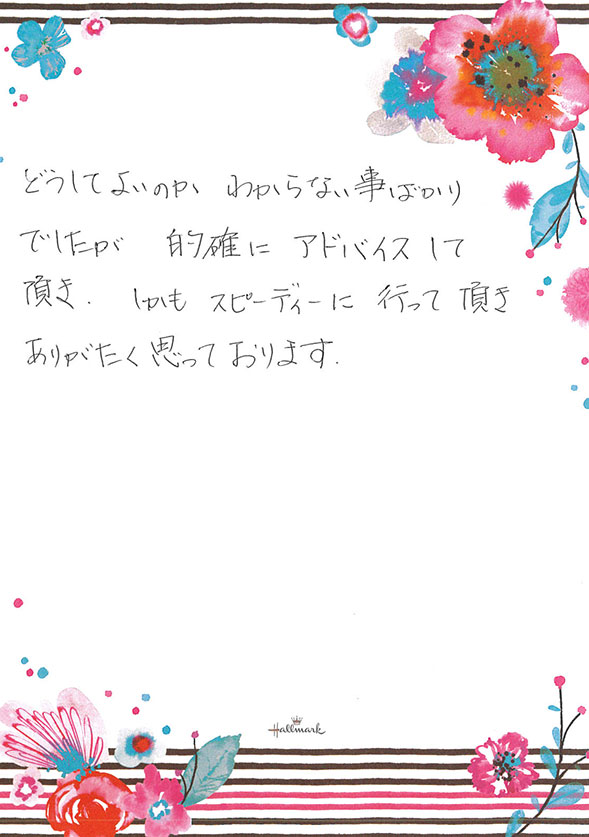 どうしてよいのか わからない事ばかり
でしたが 的確に アドバイスして
頂き. しかも スピーディーに 行って 頂き
ありがたく思っております.
Hallmark